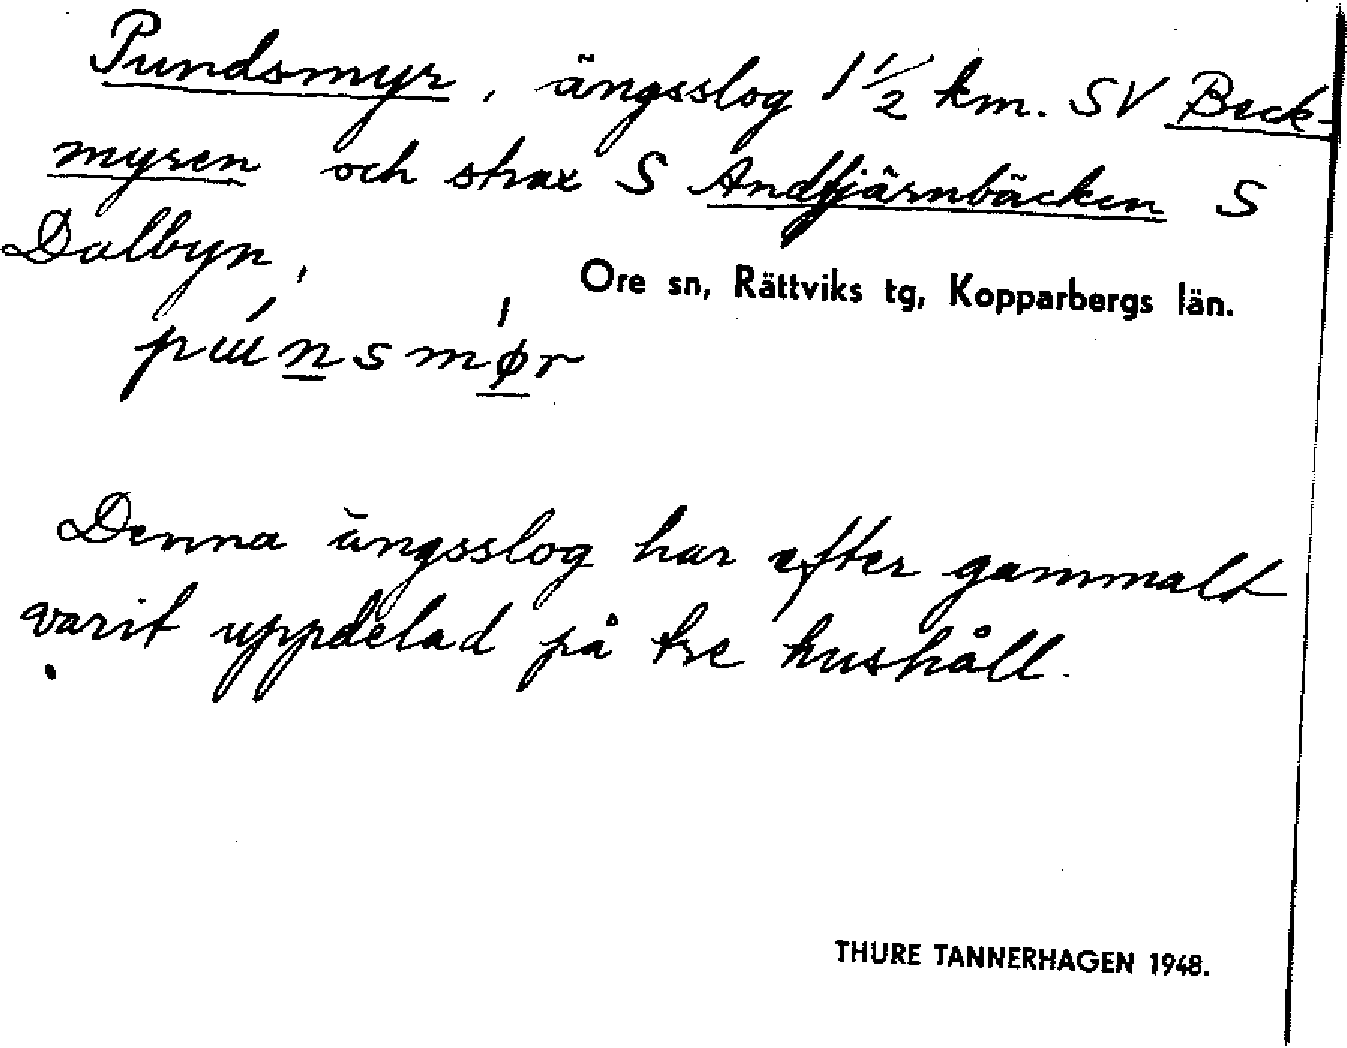 Pundsmyr, ängsslog 1 1/2 km. SV Beck-
myren och strax S Andtjärnbäcken S
Dalbyn,
Ore sn, Rättviks tg, Kopparbergs län.
Denna ängsslog har efter gammalt
varit uppdelad på tre hushåll.
THURE TANNERHAGEN 1948.